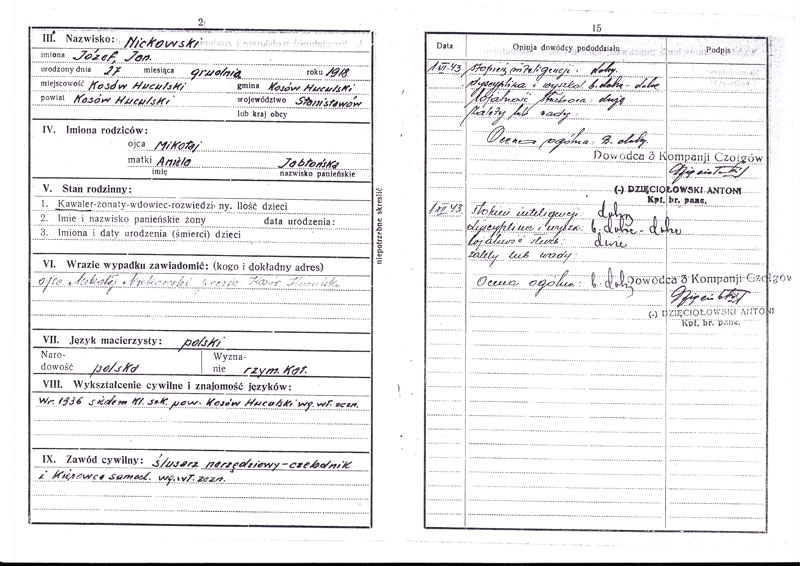 2
III. Nazwisko: Nickowski
imiona Józef, Jan.
urodzony dnia 27 miesiąca grudnia roku 1918
miejscowość Kosów Huculski gmina Kosów Huculski
powiat Kosów Huculski województwo Stanisławów
lub kraj obcy
IV. Imiona rodziców:
ojca Mikołaj
matki Aniela Jabłońska
imię nazwisko panieńskie
V. Stan rodzinny:
1. Kawaler-żonaty-wdowiec-rozwiedziony. Ilość dzieci
2. Imie i nazwisko panieńskie żony data urodzenia:
3. Imiona i daty urodzenia (śmierci) dzieci
niepotrzebne skreślić
VI. Wrazie wypadku zawiadomić: (kogo i dokładny adres)
ojca Mikołaj Nickowski Kosów Huculski
VII. Język macierzysty: polski
Narodowość polska Wyznanie rzym. kat.
VIII. Wykształcenie cywilne i znajomość języków:
W r. 1936 siedem kl. szk. pow. Kosów Huculski wg. wł. zezn.
IX. Zawód cywilny: ślusarz narzędziowy-czeladnik
i Kierowca samoch. wg. wł. zezn.
15
Data Opinja dowódcy pododdziału Podpis
1.VI.43 Stopień inteligencji: dobry.
Dyscyplina i wyszkol. b. dobre - dobre
Lojalność służbowa: duża
Zalety lub wady:
Ocena ogólna: B. dobry.
Dowódca 3 Kompanji Czołgów
(-) DZIĘCIOŁOWSKI ANTONI
Kpt. br. panc.
1.XII.43 Stopień inteligencji: dobry
Dyscyplina i wyszk. b. dobre - dobre
Lojalność służb: duże
Zalety lub wady:
Ocena ogólna: b. dobry Dowódca 3 Kompanji Czołgów
(-) DZIĘCIOŁOWSKI ANTONI
Kpt. br. panc.